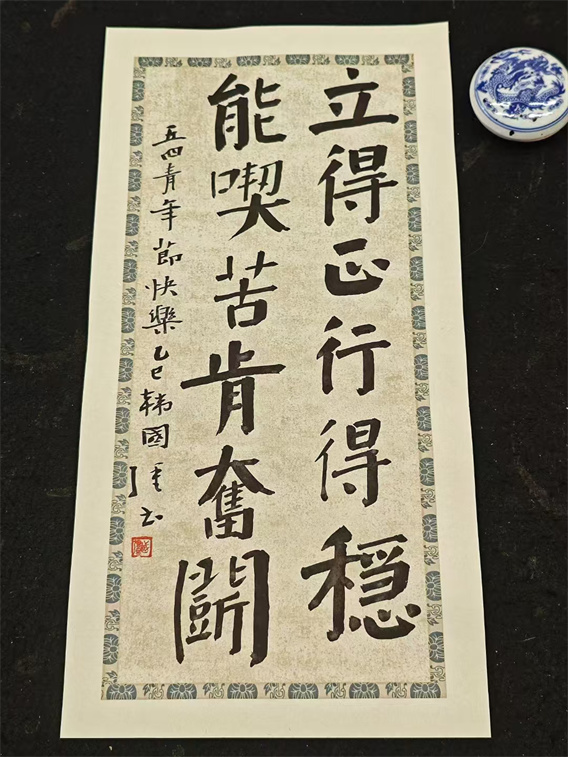 立得正行得穩
能喫苦肯奮鬭
五四青年節快樂乙巳韩國强书